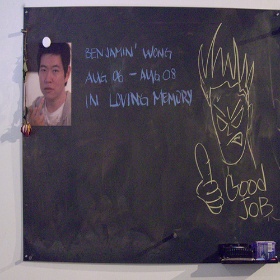 BENJAMIN' WONG
AUG 06 - AUG 08
IN LOVING MEMORY
Good
JOB